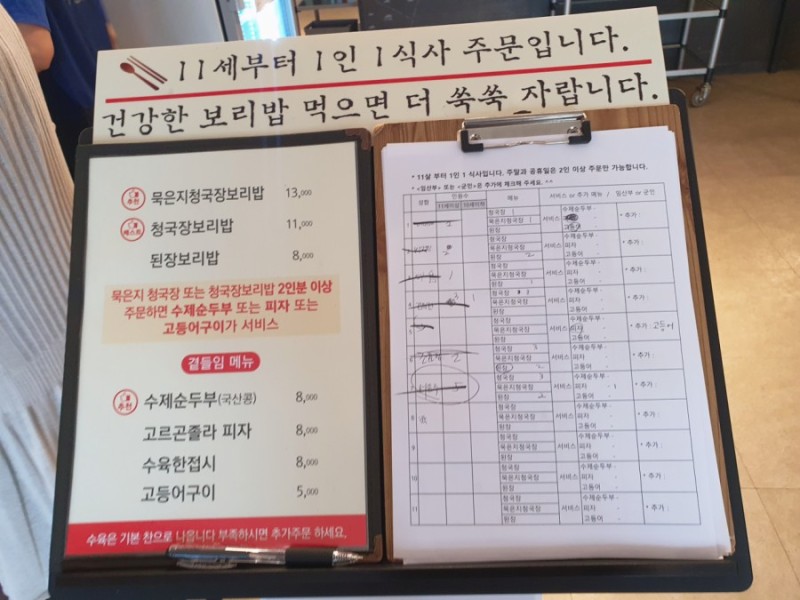 11세부터 1인 1식사 주문입니다.
건강한 보리밥 먹으면 더 쑥쑥 자랍니다.
추천 묵은지청국장보리밥 13,000
베스트 청국장보리밥 11,000
된장보리밥 8,000
묵은지 청국장 또는 청국장보리밥 2인분 이상
주문하면 수제순두부 또는 피자 또는
고등어구이가 서비스
곁들임 메뉴
추천 수제순두부(국산콩) 8,000
고르곤졸라 피자 8,000
수육한접시 8,000
고등어구이 5,000
수육은 기본 찬으로 나옵니다 부족하시면 추가주문 하세요.
* 11살 부터 1인 1 식사입니다. 주말과 공휴일은 2인 이상 주문만 가능합니다.
*<임산부> 또는 <군인>은 추가에 체크해 주세요. ^^
성함 인원수 메뉴 서비스 or 추가 메뉴 / 임산부 or 군인
청국장 1 수제순두부 -
묵은지청국장 1 서비스 * 추가 :
된장 고등어 -
청국장 수제순두부 -
묵은지청국장 서비스 피자 - * 추가 :
된장 2 고등어 -
청국장 수제순두부 -
묵은지청국장 서비스 피자 - * 추가 :
된장 고등어 -
청국장 수제순두부 -
묵은지청국장 서비스 피자 - * 추가 :
된장 고등어 -
청국장 수제순두부 -
묵은지청국장 서비스 피자 - * 추가 : 고등어
된장 고등어 -
청국장 3 수제순두부 -
묵은지청국장 서비스 피자 - * 추가 :
된장 2 고등어 -
청국장 3 수제순두부 -
묵은지청국장 서비스 피자 - 1 * 추가 :
된장 2 고등어 -
8 청국장 수제순두부 -
묵은지청국장 서비스 피자 - * 추가 :
된장 고등어 -
9 청국장 수제순두부 -
묵은지청국장 서비스 피자 - * 추가 :
된장 고등어 -
10 청국장 수제순두부 -
묵은지청국장 서비스 피자 - * 추가 :
된장 고등어 -
11 청국장 수제순두부 -
묵은지청국장 서비스 피자 - * 추가 :
된장 고등어 -